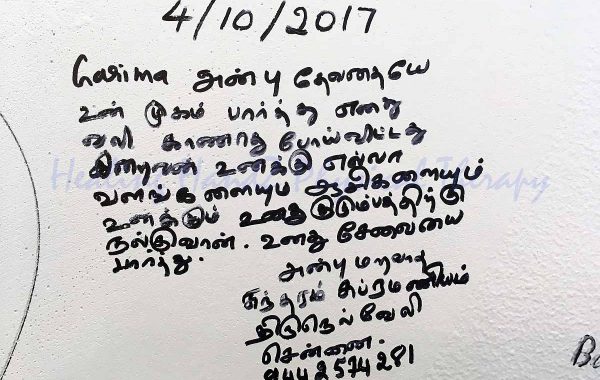 4/10/2017
Garima அன்பு தேவதையே
உன் முகம் பார்த்து எனது
வலி காணாது போய்விட்டது
இறைவன் உனக்கு எல்லா
வளங்களையும் ஆசிகளையும்
உனக்கும் உனது குடும்பத்திற்கு
நல்குவான். உனது சேவையை
பார்த்து.
அன்பு மறவாத
சுந்தரம் சுப்ரமணியம்
திருநெல்வேலி
சென்னை.
944 2574 281
Healing Hands Physical Therapy